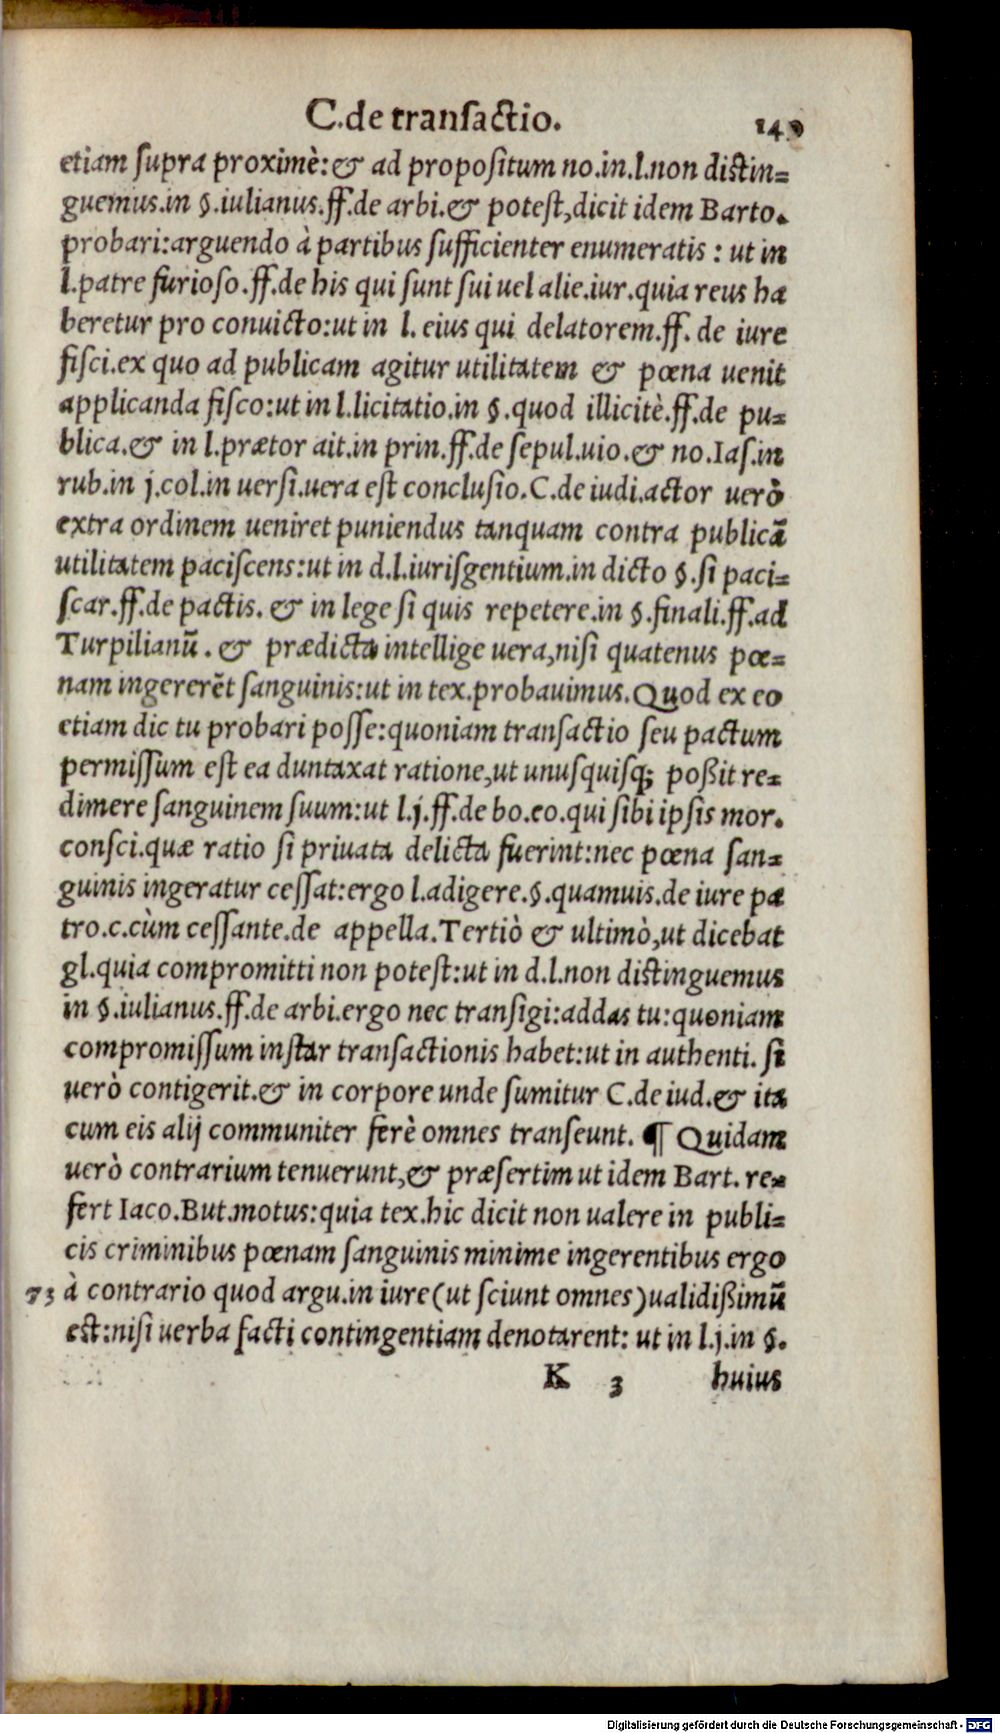 C.de transactio.
etiam supra proximè:& ad propositum no.in.l.non distin=
guemus.in §.iulianus.ff.de arbi.& potest,dicit idem Barto.
probari:arguendo à partibus sufficienter enumeratis : ut in
l.patre furioso.ff.de his qui sunt sui uel alie.iur.quia reus ha
beretur pro conuicto:ut in l. eius qui delatorem.ff. de iure
fisci.ex quo ad publicam agitur utilitatem & pœna uenit
applicanda fisco:ut in l.licitatio.in §.quod illicitè.ff.de pu=
blica.& in l.prætor ait.in prin.ff.de sepul.uio.& no.Ias.in
rub.in j.col.in uersi.uera est conclusio.C.de iudi.actor uerò
extra ordinem ueniret puniendus tanquam contra publicã
utilitatem paciscens:ut in d.l.iurisgentium.in dicto §.si paci=
scar.ff.de pactis. & in lege si quis repetere.in §.finali.ff.ad
Turpilianũ. & prædicta intellige uera,nisi quatenus pœ=
nam ingererẽt sanguinis:ut in tex.probauimus.Quod ex eo
etiam dic tu probari posse:quoniam transactio seu pactum
permissum est ea duntaxat ratione,ut unusquisq; poßit re=
dimere sanguinem suum:ut l.j.ff.de bo.eo.qui sibi ipsis mor.
consci.quæ ratio si priuata delicta fuerint:nec pœna san=
guinis ingeratur cessat:ergo l.adigere.§.quamuis.de iure pa
tro.c.cùm cessante.de appella.Tertiò & ultimò,ut dicebat
gl.quia compromitti non potest:ut in d.l.non distinguemus
in §.iulianus.ff.de arbi.ergo nec transigi:addas tu:quoniam
compromissum instar transactionis habet:ut in authenti. si
uerò contigerit.& in corpore unde sumitur C.de iud.& ita
cum eis alij communiter ferè omnes transeunt. ¶ Quidam
uerò contrarium tenuerunt,& præsertim ut idem Bart. re=
fert Iaco.But.motus:quia tex.hic dicit non ualere in publi=
cis criminibus pœnam sanguinis minime ingerentibus ergo
73 à contrario quod argu.in iure(ut sciunt omnes)ualidißimũ
est:nisi uerba facti contingentiam denotarent: ut in l.j.in §.
K 3 huius
Digitalisierung gefördert durch die Deutsche Forschungsgemeinschaft - DFG